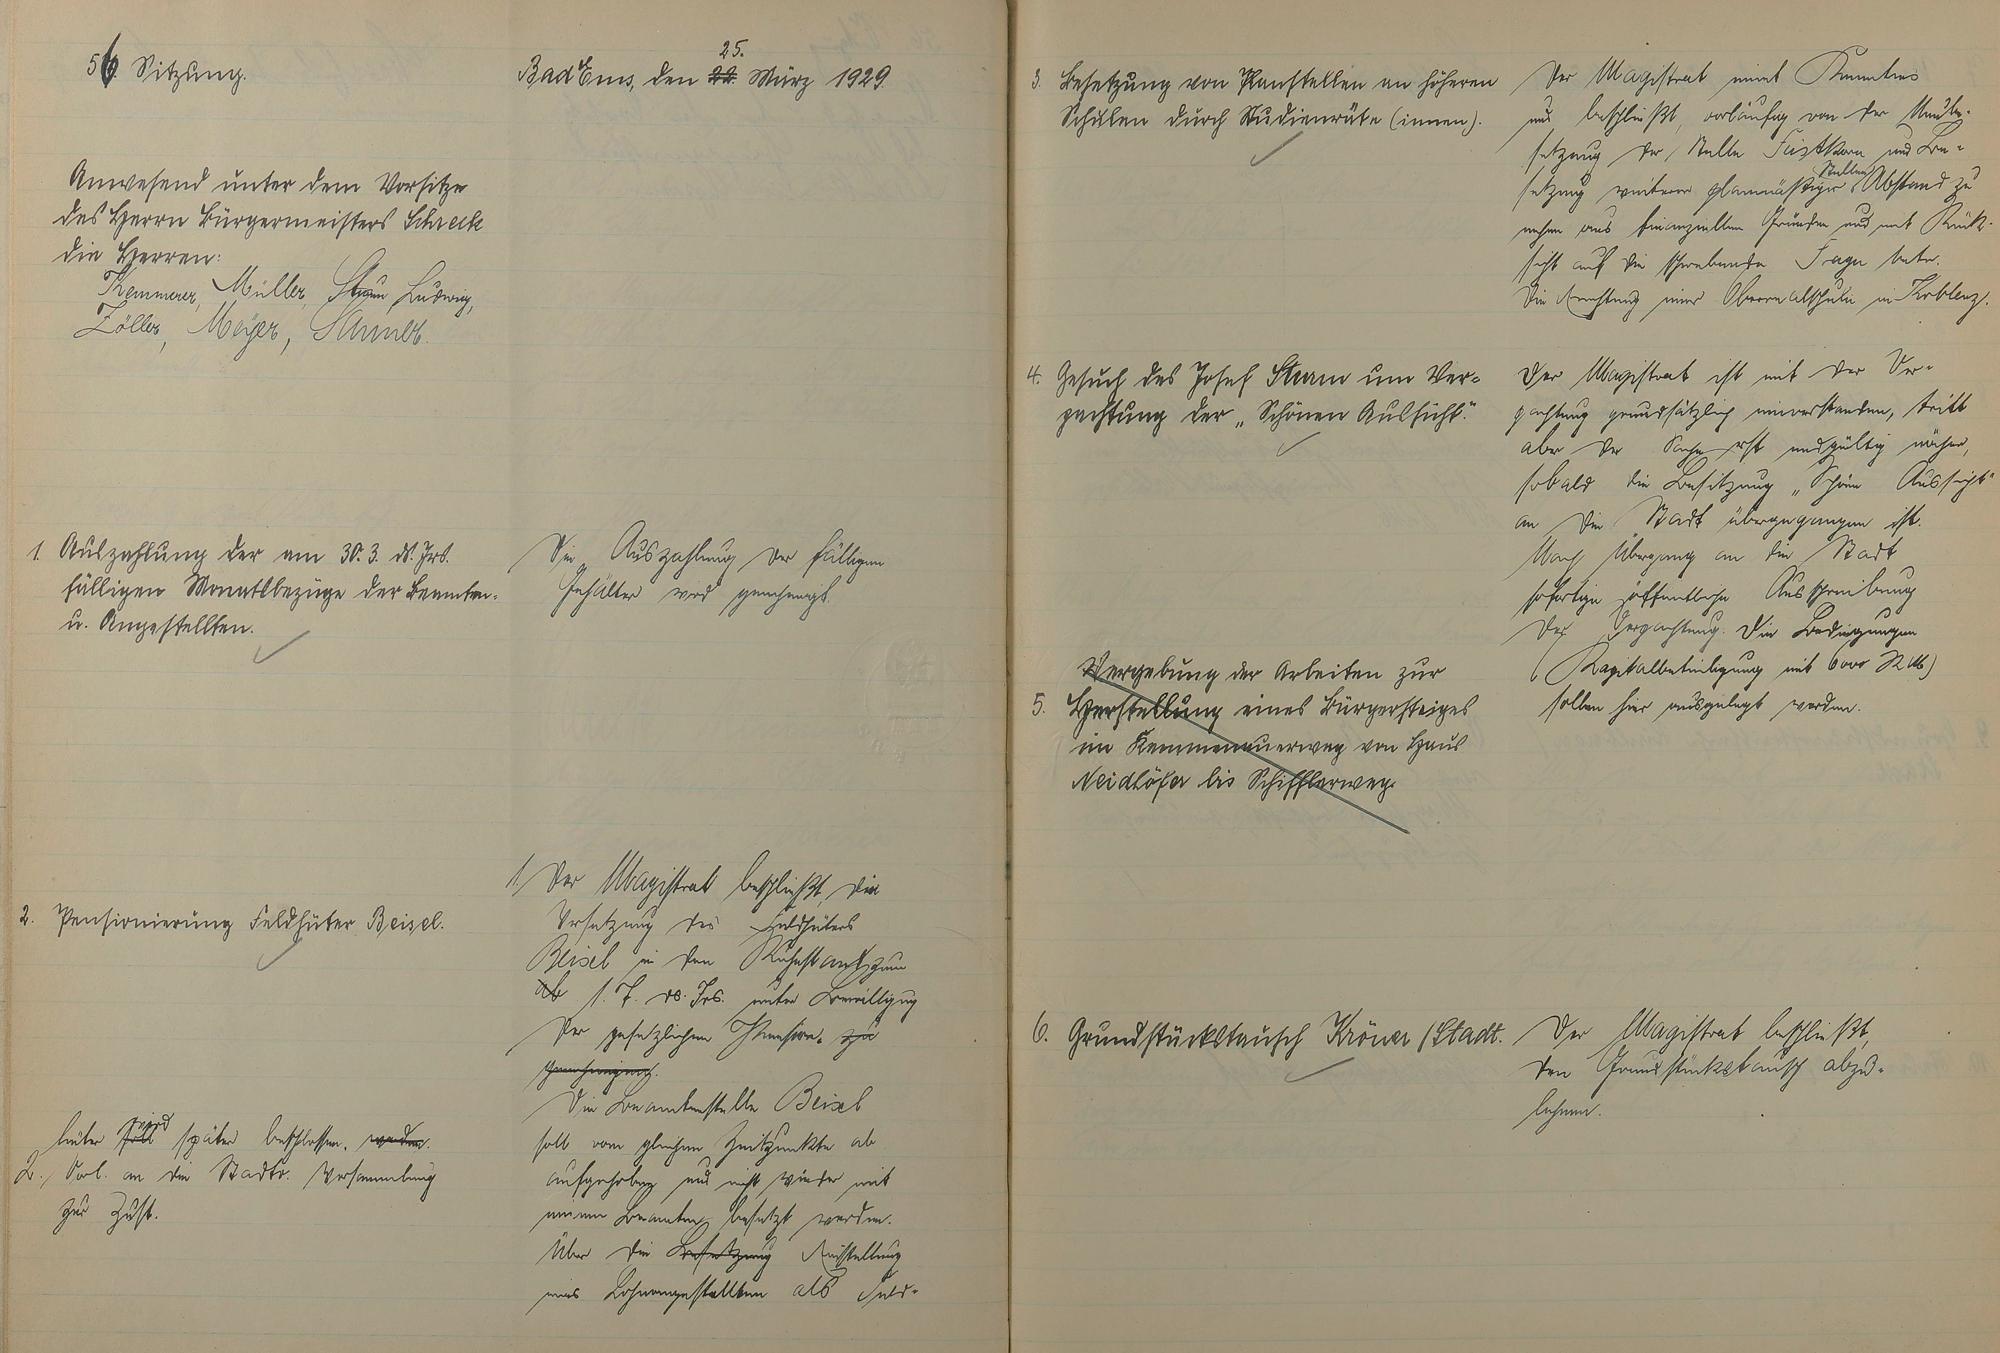 56. Sitzung.
Bad Ems, den 22. 25. März 1929.
Anwesend unter dem Vorsitze
des Herrn Bürgermeisters Schreck
die Herren:
Kemmerer, Müller, Ludwig,
Zöller, Meyer,
1. Auszahlung der am 30.3. ds. Jrs.
fälligen Monatsbezüge der Beamten-
u. Angestellten.
Die Auszahlung der fälligen
Gehälter wird genehmigt.
2. Pensionierung Feldhüter Beisel.
1. Der Magistrat beschließt, die
Versetzung des Feldhüters
Beisel in den Ruhestand zum
ab 1. 7. ds. Jrs. unter Bewilligung
der gesetzlichen Pension. zu
genehmigen.
Die Beamtenstelle Beisel
soll vom gleichen Zeitpunkte ab
aufgehoben und nicht wieder mit
einem Beamten besetzt werden.
Über die Besetzung Einstellung
eines Lohnangestellten als Feld-
hüter soll wird später beschlossen. werden.
2. Vorl. an die Stadtv. Versammlung
zur Zust.
3. Besetzung von Planstellen an höheren
Schulen durch Studienräte (innen).
Der Magistrat nimmt Kenntnis
und beschließt, vorläufig von der Neube-
setzung der Stelle und Be-
setzung weiterer planmäßiger Stellen Abstand zu
nehmen aus finanziellen Gründen und mit Rück-
sicht auf die schwebende Frage betr.
die Errichtung einer Oberrealschule in Koblenz.
4. Gesuch des Josef Sturm um Ver-
pachtung der „Schönen Aussicht“.
Der Magistrat ist mit der Ver-
pachtung grundsätzlich einverstanden, tritt
aber der Sache erst endgültig näher,
sobald die Besitzung „Schöne Aussicht“
an die Stadt übergegangen ist.
Nach Übergang an die Stadt
sofortige öffentliche Ausschreibung
der Verpachtung. Die Bedingungen
(Kapitalbeteiligung mit 6000 RM)
sollen hier ausgelegt werden.
5. Vergebung der Arbeiten zur
Herstellung eines Bürgersteiges
im Kemmenauerweg von Haus
Neidhöfer bis Schifflerweg.
6. Grundstückstausch Kröner / Stadt.
Der Magistrat beschließt,
den Grundstückstausch abzu-
lehnen.